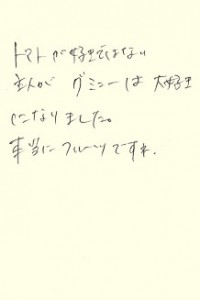 トマトが好きではない
主人が グミニーは 大好き
になりました。
本当にフルーツですね。